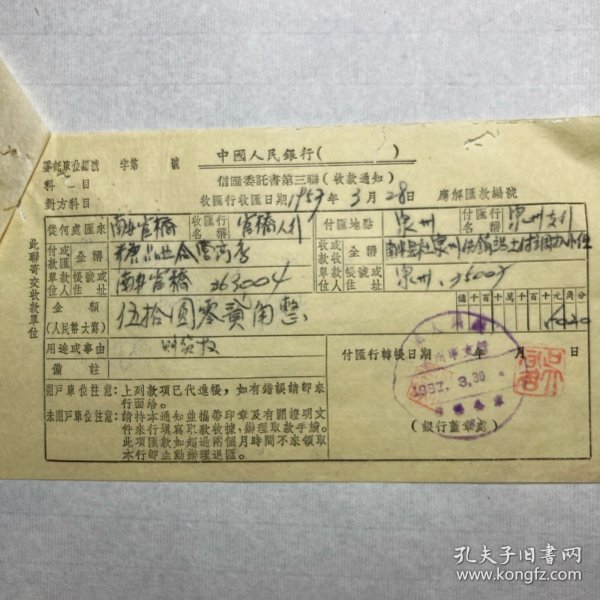 委託單位編號 字第 號
中國人民銀行( )
科目
信匯委託書第三聯(收款通知)
對方科目
收匯行收匯日期1957年3月28日
應解匯款編號
此聯寄交收款單位
從何處匯來 南安官橋 收匯行名稱 官橋人行 付匯地點 泉州 付匯行名稱 泉州支行
付或款匯款單位人 全稱
收或款收款單位人 全稱
帳號或住址 南安官橋 363004
帳號或住址 泉州.
金額(人民幣大寫) 伍拾圓零貳角整
億千百十萬千百十元角分
5020
用途或事由
付匯行轉帳日期 年 月 日
備註
1957.3.30
開戶單位注意:上列款項已代進帳,如有錯誤請即來行面洽。
未開戶單位注意:請持本通知並攜帶印章及有關證明文件來行填寫取款收據,辦理取款手續。此項匯款如超過兩個月時間不來領取本行即主動辦理退匯。
(銀行蓋章處)
孔夫子旧书网
www.kongfz.com